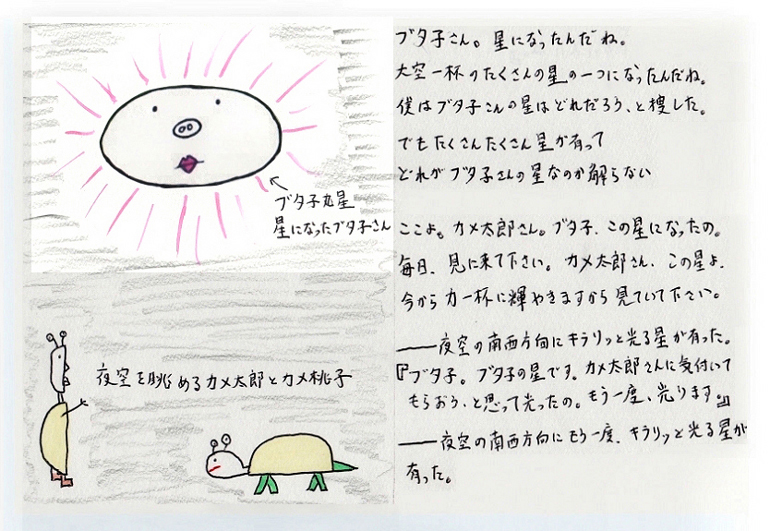 ブタ子さん。星になったんだね。
大空一杯のたくさんの星の一つになったんだね。
僕はブタ子さんの星はどれだろう、と捜した。
でもたくさんたくさん星が有って
どれがブタ子さんの星なのか解らない
ここよ。カメ太郎さん。ブタ子、この星になったの。
毎日、見に来て下さい。カメ太郎さん、この星よ、
今から力一杯に輝やきますから見ていて下さい。
――夜空の南西方向にキラリッと光る星が有った。
『ブタ子。ブタ子の星です。カメ太郎さんに気付いて
もらおう、と思って光ったの。もう一度、光ります。』
――夜空の南西方向にもう一度、キラリッと光る星が
有った。
ブタ子丸星
星になったブタ子さん
夜空を眺めるカメ太郎とカメ桃子